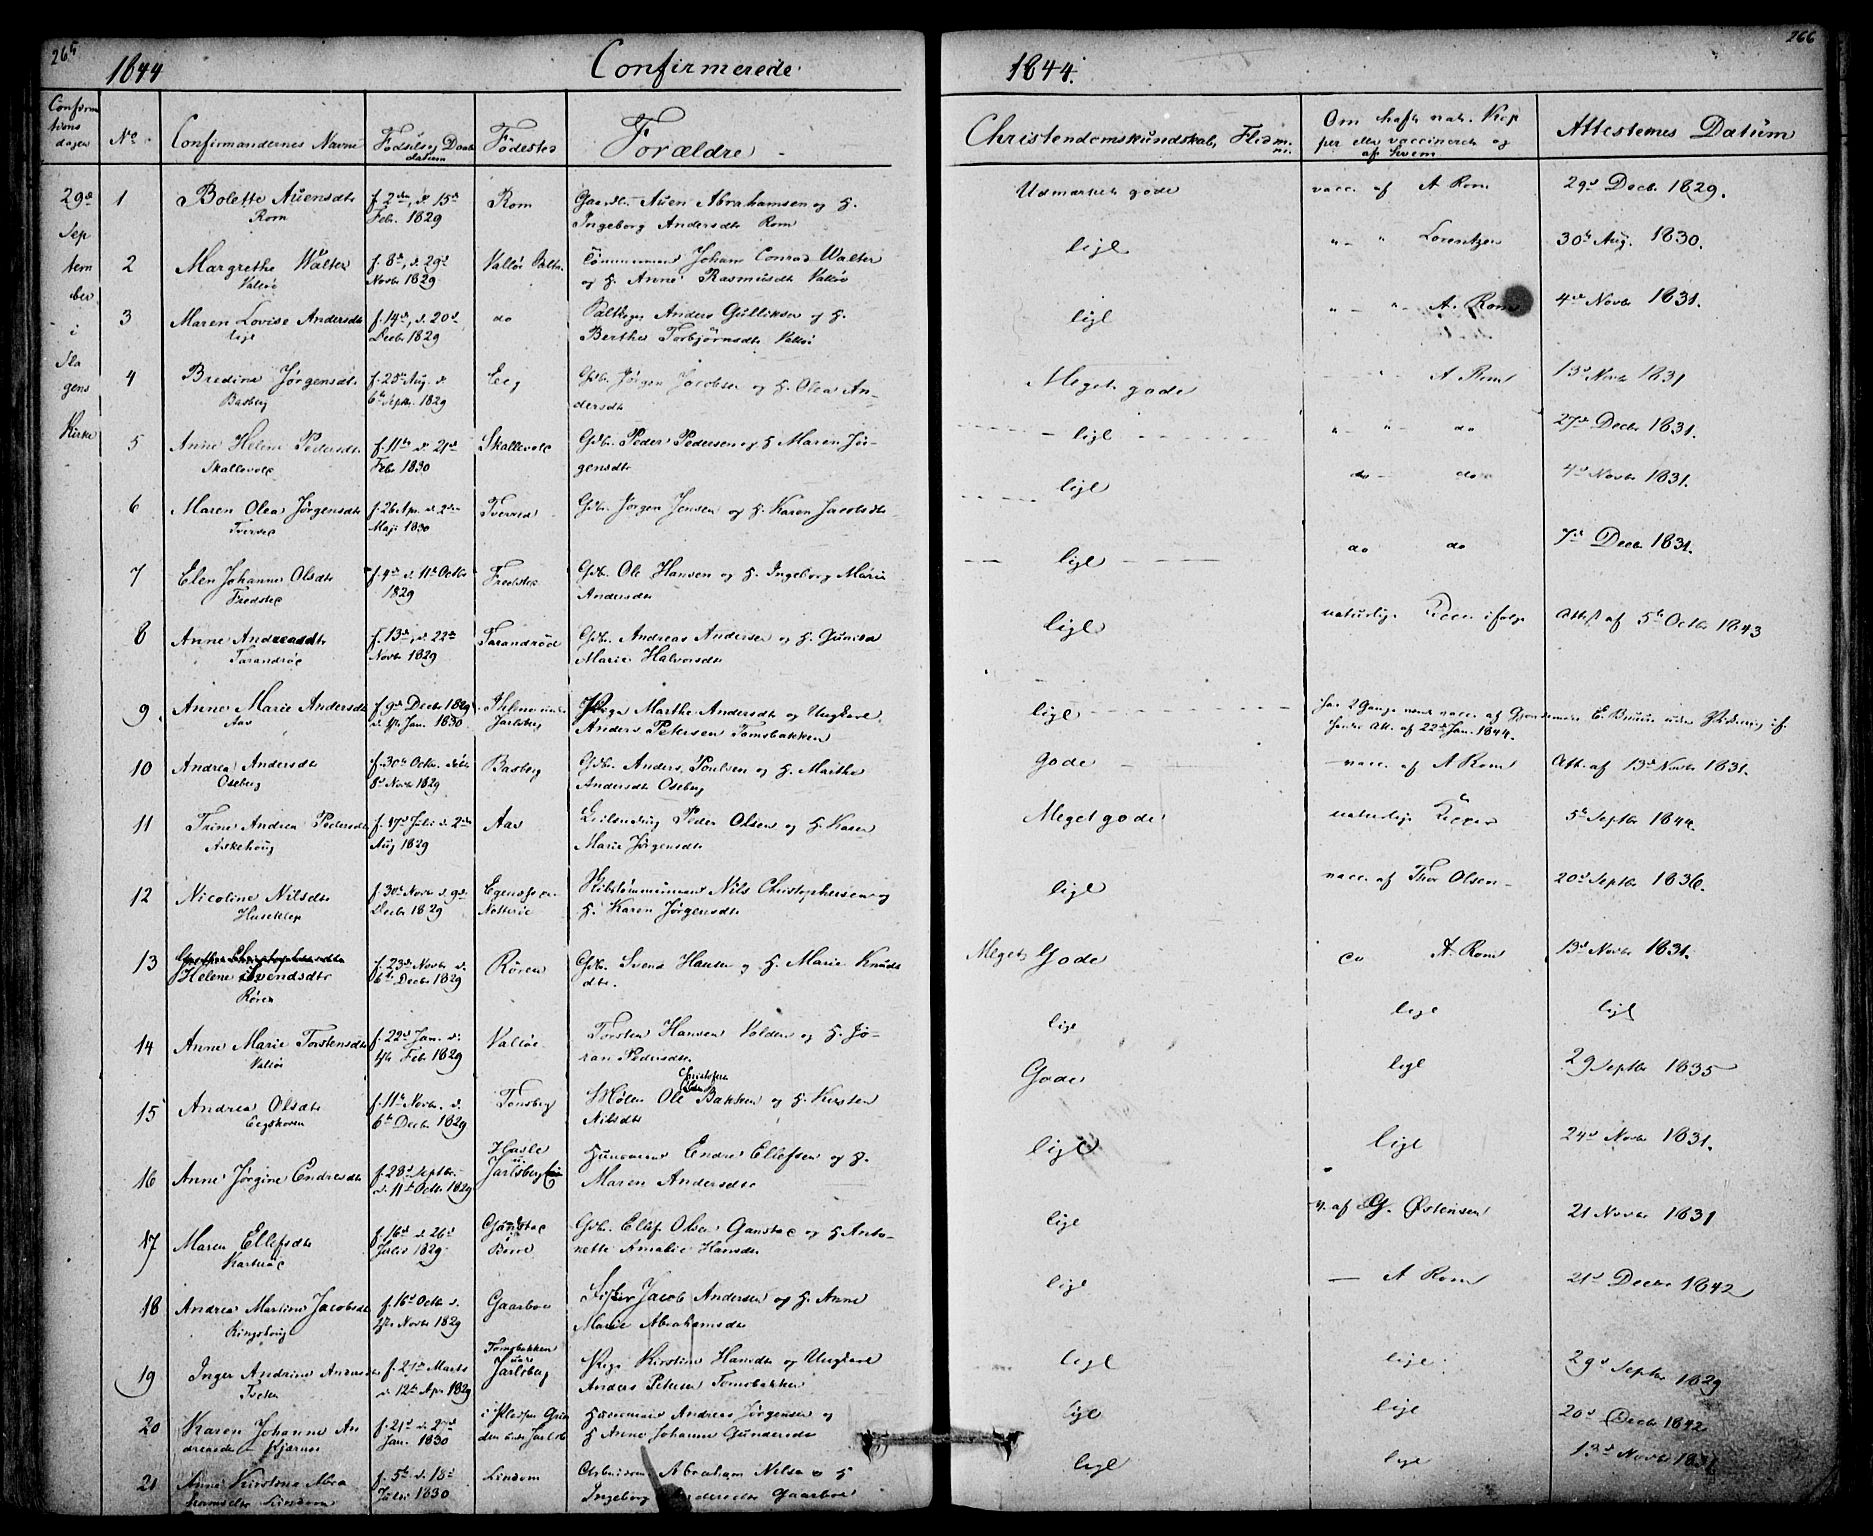 265
1844
Confirmerede
Confirma
tions
dagen
No
Confirmandernes Navne
Fødsels og Daabs
datum
Fødested
Forældre
29de
Sep
tem
ber
i
Sla
gens
Kirke
1 Bolette Auensdtr f. 2den, d. 15de Rom Gaardbr. Auen Abrahamsen og H.
Rom Febr. 1829 Ingeborg Andersdtr Rom
2 Margrethe Walter f. 8de, d. 29de Valløe Tømmermand Johan Conrad Walter
Valløe Novbr 1829 og H. Anne Rasmusdtr Valløe
3 Maren Lovise Andersdtr f. 14de, d. 20de do Anders Gulliksen og H.
lige Decbr 1829 Berthe Torbjørnsdtr Valløe
4 Bredine Jørgensdtr f. 25de Aug. d. Eeg Gdbr. Jørgen Jacobsen og H. Olea An-
Basberg 6te Septbr. 1829 dersdtr
5 Anne Helene Pedersdtr f. 11te, d. 21de Skallevold Gdbr. Peder Pedersen og H. Maren Jør-
Skallevold Febr 1830 gensdtr
6 Maren Olea Jørgensdtr f. 26 Apr. d. 2den Tverved Gdbr. Jørgen Jensen og H. Karen Jacobsdtr
Tverved Maji 1830
7 Elen Johanne Olsdtr f. 4de d. 11te Octbr Fredsted Gdbr. Ole Hansen og H. Ingeborg Marie
Fredsted 1829 Andersdtr
8 Anne Andreasdtr f. 13de, d. 22de Tarandrød Gdbr. Andreas Andersen og H. Gunild
Tarandrød Novbr 1829 Marie Halvorsdtr
9 Anne Marie Andersdtr f. 9de Decbr 1829 under Pige Marthe Andersdtr og Ungkarl
Aas d. 1ste Jan. 1830 Jarlsberg Anders Petersen Tomsbakken
10 Andrea Andersdtr f. 30te Octbr. døbt Basberg Gdbr. Anders Poulsen og H. Marthe
Oseberg 8de Novbr 1829 Andersdtr Oseberg
11 Trine Andrea Pedersdtr f. 17de Juli d. 2den Aas Peder Olsen og H. Karen
Askehoug Aug 1829 Marie Jørgensdtr
12 Nicoline Nilsdtr f. 30te Novbr d. 9de Skibstømmermand Nils Christophersen og
Huseklep Decbr 1829 Nøtterøe H. Karen Jørgensdtr
13 Helene Svendsdtr f. 23de Novbr d. Røren Gdbr. Svend Hansen og H. Marie Knuds
Røren 6te Decbr 1829 dtr.
14 Anne Marie Torstensdtr f. 22de Jan. d. Valløe Torsten Hansen Volden og H. Jø-
Valløe 1ste Febr 1829 ran Pedersdtr
15 Andrea Olsdtr f. 11te Novbr. d. Tønsberg Ole Bakken og H. Kirsten
Eegskoven 6te Decbr 1829 Nilsdtr
16 Anne Jørgine Endresdtr f. 28de Septbr. Hasle Huusmand Endre Ellefsen og H.
d. 11te Octbr 1829 Jarlsberg Maren Andersdtr
17 Maren Ellefsdtr f. 16de d. 26de Ganstad Gdbr. Ellef Olsen Ganstad og H. Anto-
Julii 1829 Borre nette Amalie Hansdtr
18 Andrea Martine Jacobsdtr f. 16de Octbr d. Gaarboe Fisker Jacob Andersen og H. Anne
Ringshoug 1ste Novbr 1829 Marie Abrahamsdtr
19 Inger Andrine Andersdtr f. 21de Marts Tomsbakken Pige Kirstine Hansdtr og Ungkarl
Tveten d. 12te Apr. 1829 under Jarlsberg Anders Petersen Tomsbakken
20 Karen Johanne An f. 21de d. 27de Huusmand Andreas Jørgensen og
dreasdtr Kjærnes Jan. 1830 den under Jarlsb H. Anne Johanne Gundersdtr
21 Anne Kirstine Abra f. 5te d. 18de Lindom Abraham Nilsen og H
hamsdtr Lindom Julii 1830 Ingeborg Andersdtr Gaarboe
266
1844.
Christendomskundskab, Flid
Om havt nat. Kop
per eller vaccineret og
af hvem
Attesternes Datum
Udmærket gode vacc. af A Rom 29de Decbr 1829.
lige " - " Lorentzen 30te Aug. 1830.
lige " - " - A. Rom 4de Novbr 1831.
Meget gode " A Rom 13de Novbr 1831
lige " - " - do 27de Decbr 1831.
lige do - do 4de Novbr 1831.
lige do do 7de Decbr 1831.
lige naturlige Kopper ifølge Attest af 5te Octbr 1843
lige har 2 Gange vacc. af E. Bruun
Att. af 22de Jan. 1844.
Gode vacc. af A Rom Att. af 13de Novbr 1831.
Meget gode naturlige Kopper 5te Septbr 1844.
lige vacc. af Thor Olsen 20de Septbr 1836.
Meget Gode do A Rom 13de Novbr 1831.
lige lige lige
Gode lige 29 Septbr 1835
lige lige 24de Novbr 1831.
lige v. af G. Østensen 21 Novbr 1831
lige — A Rom 21de Decbr 1842
lige lige 29de Septbr 1829
lige lige 20de Decbr 1842
lige lige 13de Novbr